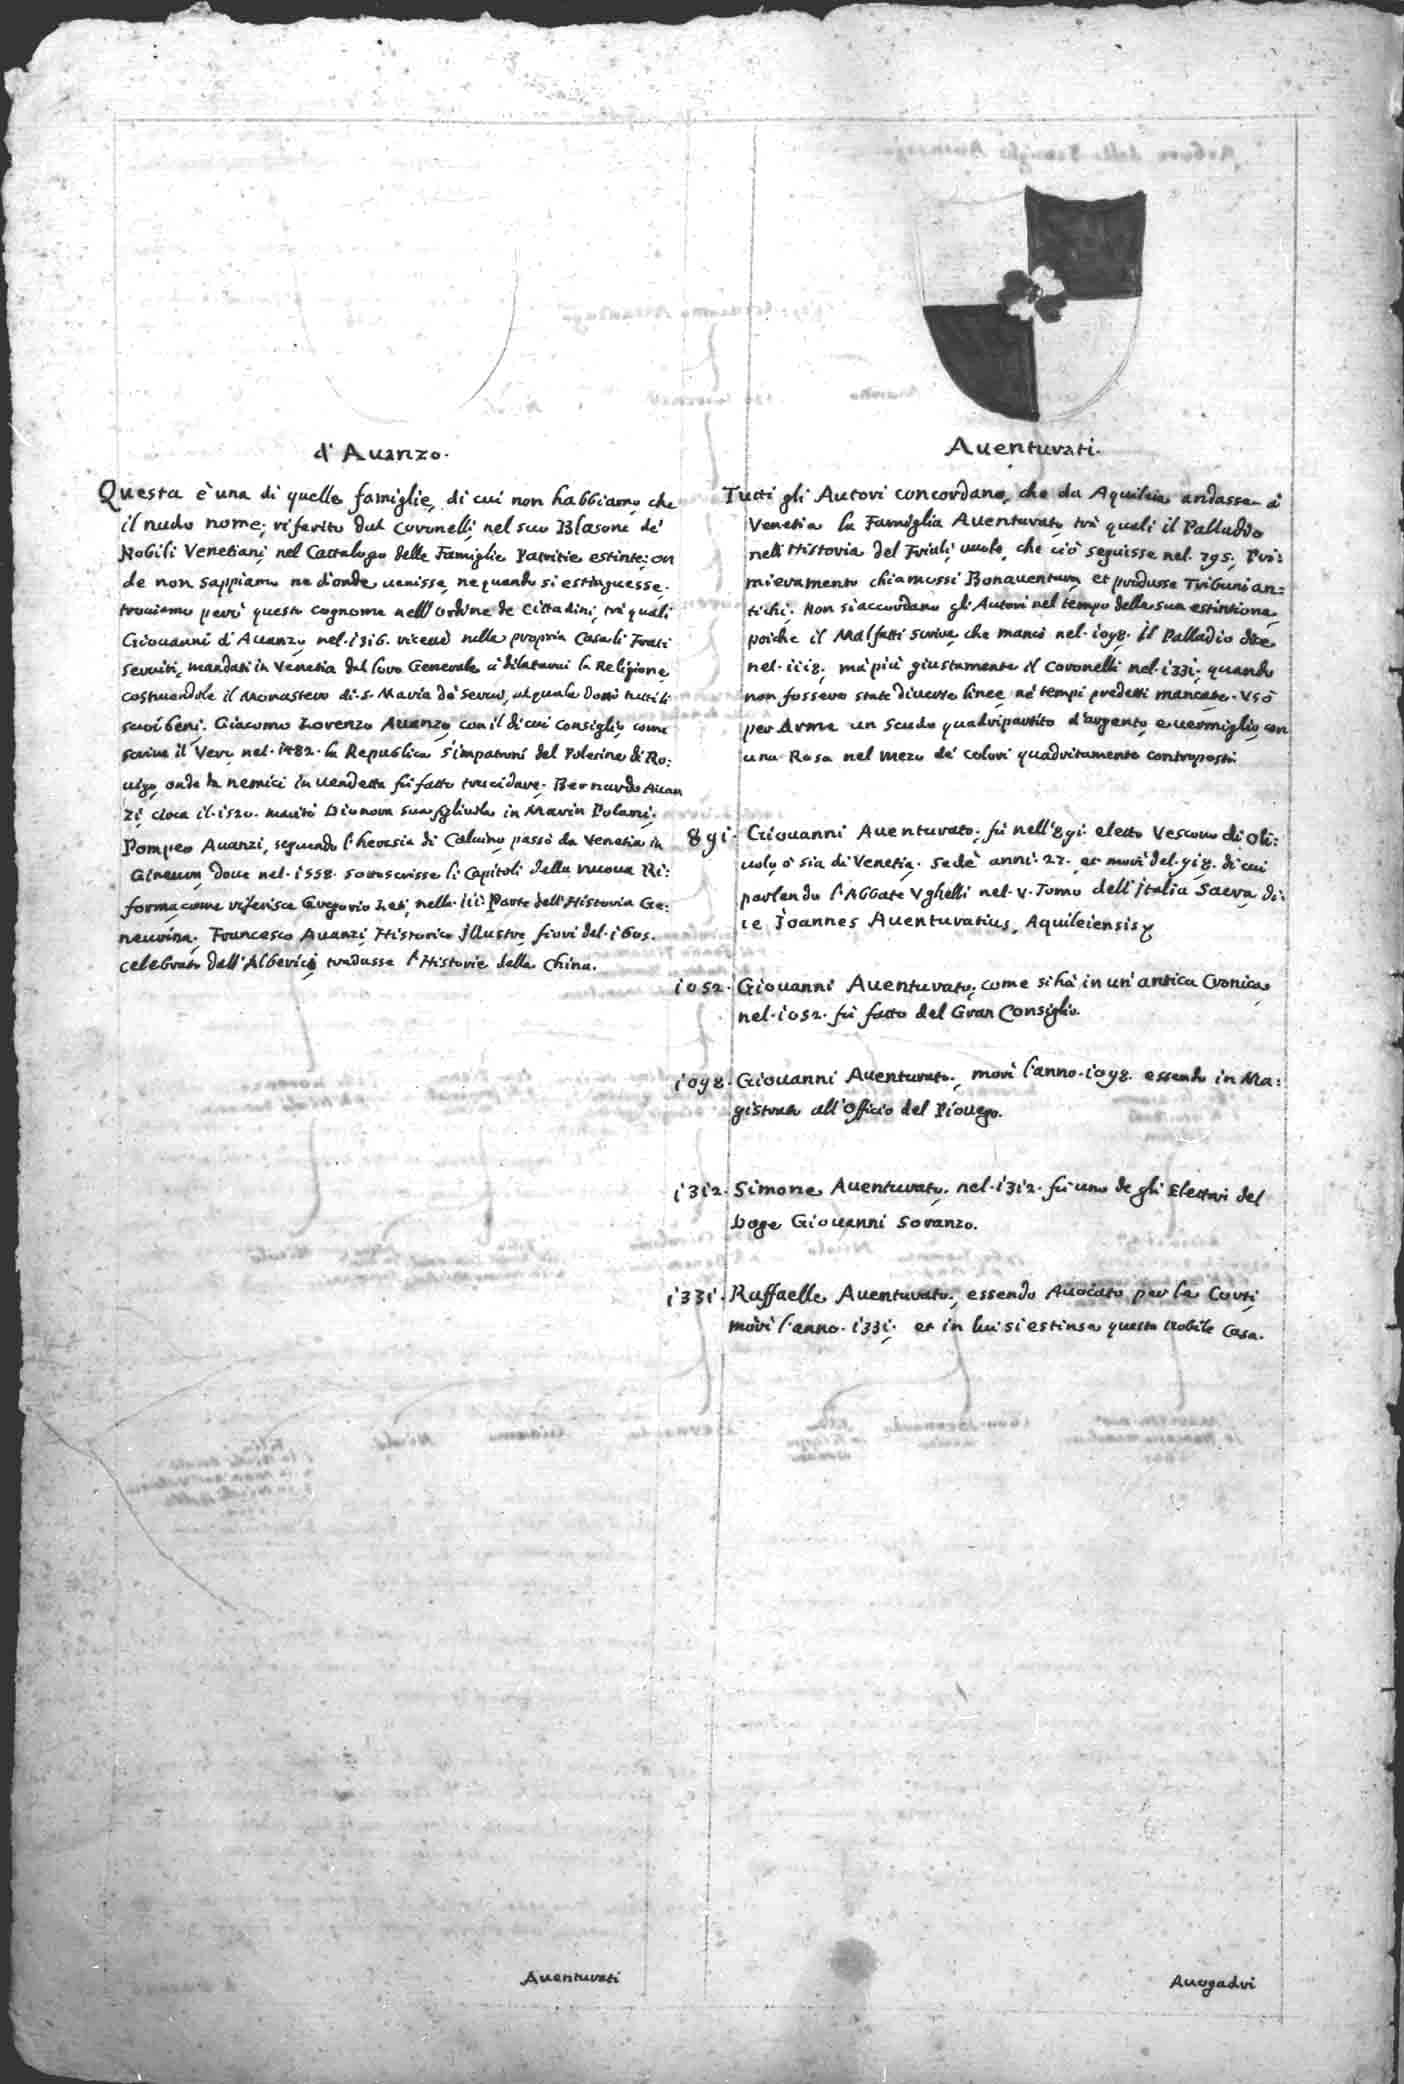 d'Auanzo.
Questa è una di quelle famiglie, di cui non habbiamo che
il nudo nome; riferito dal Coronelli nel suo Blasone de'
Nobili Venetiani nel Cattalogo delle Famiglie Patritie estinte; on
de non sappiamo ne d'onde uenisse, ne quando si estinguesse.
trouiamo però questo cognome nell'ordine de Cittadini, trà quali
Giouanni d'Auanzo nel. 1316. riceuè nella propria Casa li Frati
Seruiti, mandati in Venetia dal loro Generale à dilatarui la Religione
costruendole il Monastero di. S. Maria de' Serui, al quale donò tutti li
suoi beni. Giacomo Lorenzo Auanzo con il di cui Consiglio come
scriue il Vero nel. 1482. la Republica s'impatronì del Polesine di Ro:
uigo, onde da nemici in uendetta fù fatto trucidare. Bernardo Auan
zi circa il. 1520. maritò Dianora sua figliuola in Marin Polani.
Pompeo Auanzi, seguendo l'heresia di Caluino passò da Venetia in
Gineura, doue nel. 1558. sottoscrisse li Capitoli della nuoua Ri:
forma come riferisce Gregorio Leti nella. III. Parte dell'Historia Ge:
neurina. Francesco Auanzi Historico Illustre fiorì del. 1605.
celebrato dall'Alberici tradusse l'Historie della China.
Auenturati
Auenturati.
Tutti gli Autori concordano, che da Aquileia andasse à
Venetia la Famiglia Auenturato, trà quali il Palladio
nell'Historia del Friuli uuole, che ciò seguisse nel. 795. Pri:
mieramente chiamossi Bonauentura, et produsse Tribuni an:
tichi. Non si accordano gli Autori nel tempo della sua estintione
poiche il Malfatti scriue, che mancò nel. 1098. il Palladio dice
nel. 1118. mà più giustamente il Coronelli nel. 1331. quando
non fossero state diuerse linee ne' tempi predetti mancate. Vsò
per Arma un scudo quadripartito d'argento, e uermiglio con
una Rosa nel mezo de' colori quadritamente contraposti.
891. Giouanni Auenturato, fù nell'891. eletto Vescouo di Oli:
uolo ò sia di Venetia. Sedè anni. 27. et morì del. 918. di cui
parlendo l'Abbate Vghelli nel. V. Tomo dell'Italia Sacra di:
ce Joannes Auenturatius, Aquileiensis
1052. Giouanni Auenturato, come si hà in un'antica Cronica
nel. 1052. fù fatto del Gran Consiglio.
1098. Giouanni Auenturato, morì l'anno. 1098. essendo in Ma:
gistrato all'Officio del Piouego.
1312. Simone Auenturato, nel. 1312. fù uno de gli Elettori del
Doge Giouanni Soranzo.
1331. Raffaelle Auenturato, essendo Auocato per le Corti
morì l'anno. 1331. et in lui si estinse questa Nobile Casa.
Auogadri